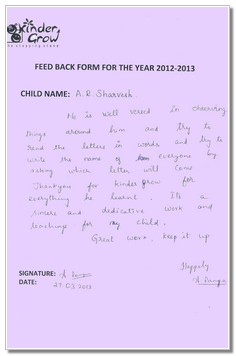 Kinder
Grow
FEED BACK FORM FOR THE YEAR 2012-2013
CHILD NAME: A.R Sharvesh.
He is well versed in observing
things around him and try to
read the letters in words and try to
write the name of everyone by
asking which letter will come
Thankyou for kinder grow for
everything he learnt. Its a
sincere and dedicative work and
teachings for my child.
Great work, keep it up
Happily
SIGNATURE:
DATE: 27.03.2013